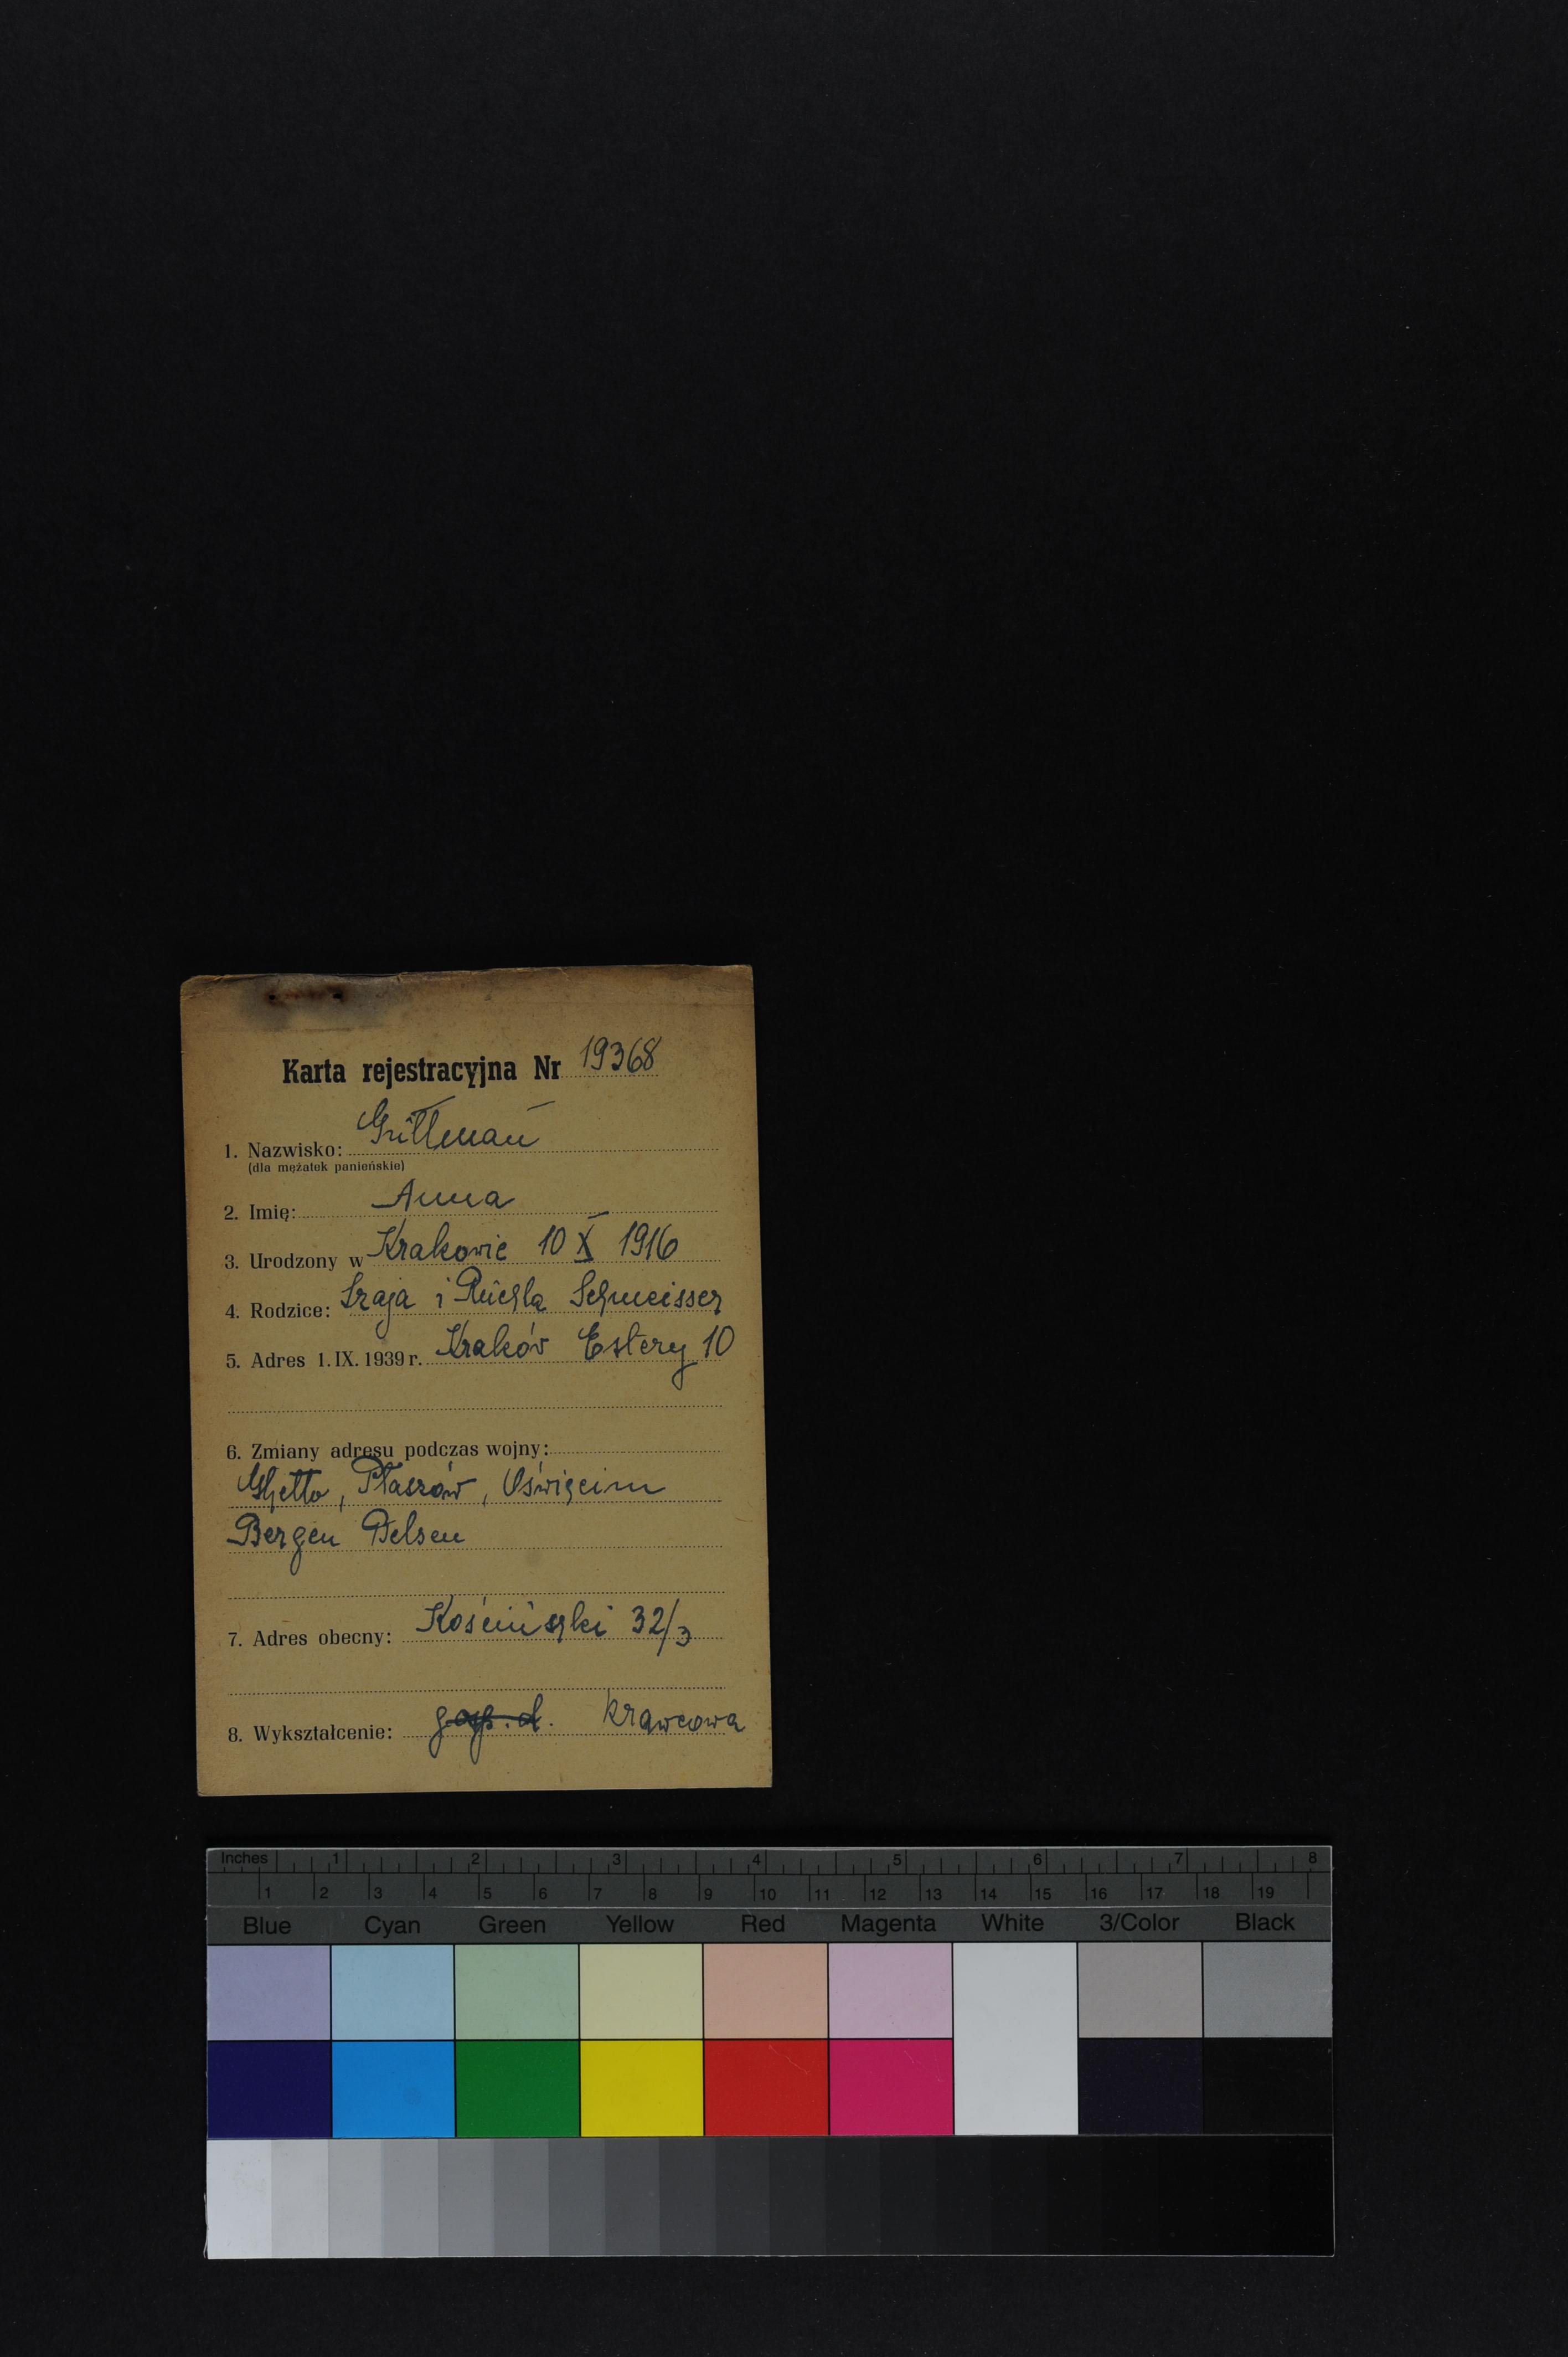 Karta rejestracyjna Nr 19368
1. Nazwisko: Guttman
(dla mężatek panieńskie)
2. Imię: Anna
3. Urodzony w Krakowie 10 X 1916
4. Rodzice: Szaja i Ruchla Schmeisser
5. Adres 1. IX. 1939 r. Kraków Estery 10
6. Zmiany adresu podczas wojny:
Ghetto, Płaszów, Oświęcim
Bergen Belsen
7. Adres obecny: Kościuszki 32/3
8. Wykształcenie: gosp. d. krawcowa
Inches 1 2 3 4 5 6 7 8
1 2 3 4 5 6 7 8 9 10 11 12 13 14 15 16 17 18 19
Blue Cyan Green Yellow Red Magenta White 3/Color Black